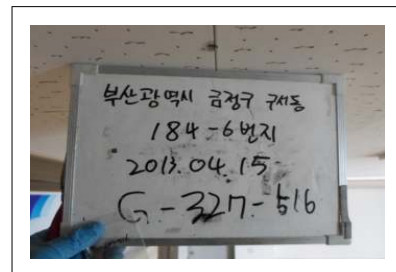 부산광역시 금정구 구서동
184-6번지
2013.04.15
G-327-516